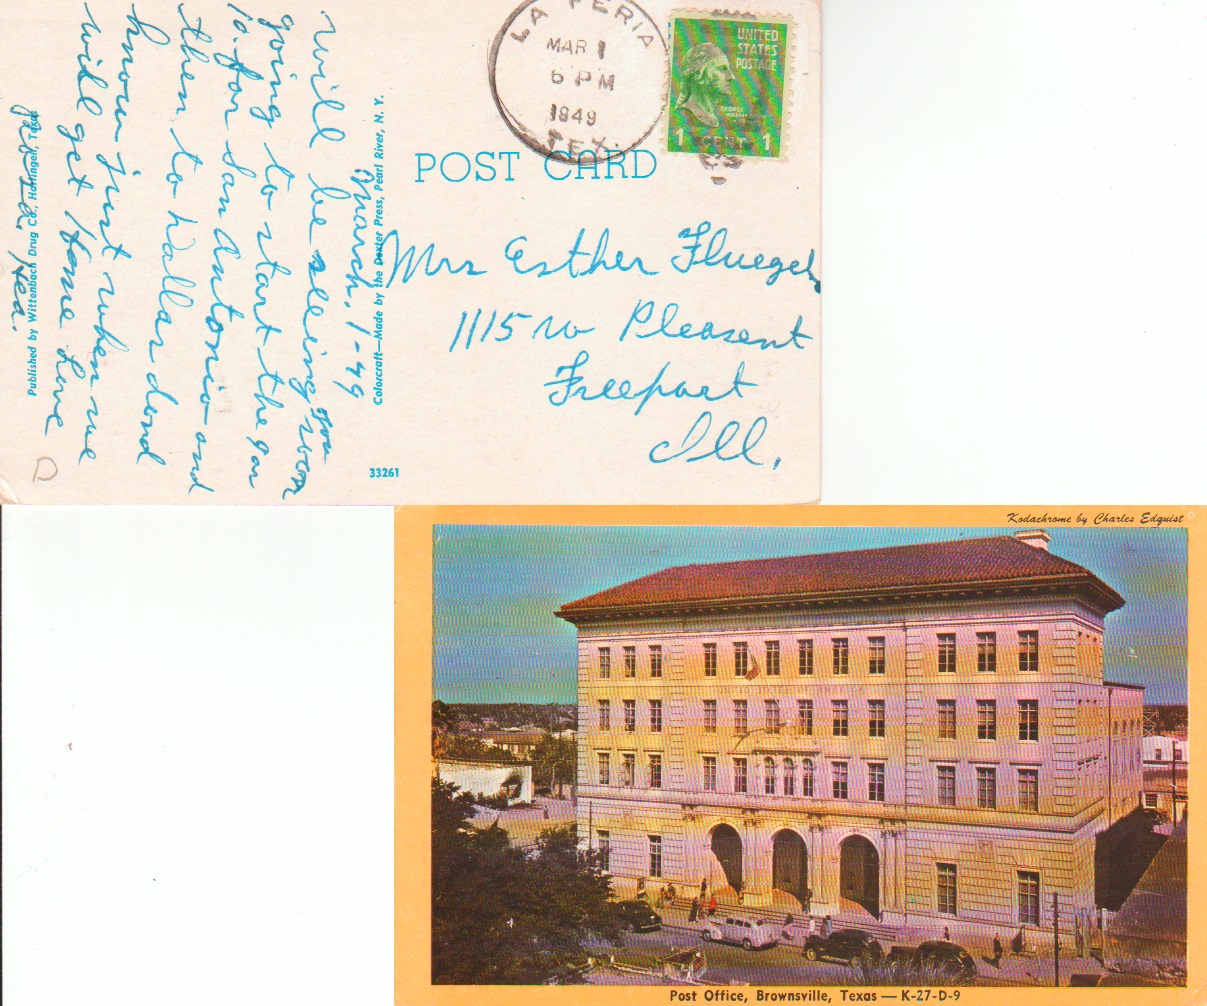 LA FERIA
MAR 1
6 PM
1949
TEX.
UNITED
STATES
POSTAGE
GEORGE
WASHINGTON
1 CENT 1
POST CARD
Mrs Esther Fluegel
1115 W Pleasent
Freeport
Ill.
March. 1-49
will be seeing you soon
going to start the
10. for San Antonio and
then to Wallas dond
know just when we
will get Home Love
Colorcraft—Made by the Dexter Press, Pearl River, N. Y.
Published by Wittenbach Drug Co., Harlingen, Texas
33261
Kodachrome by Charles Edquist
Post Office, Brownsville, Texas — K-27-D-9